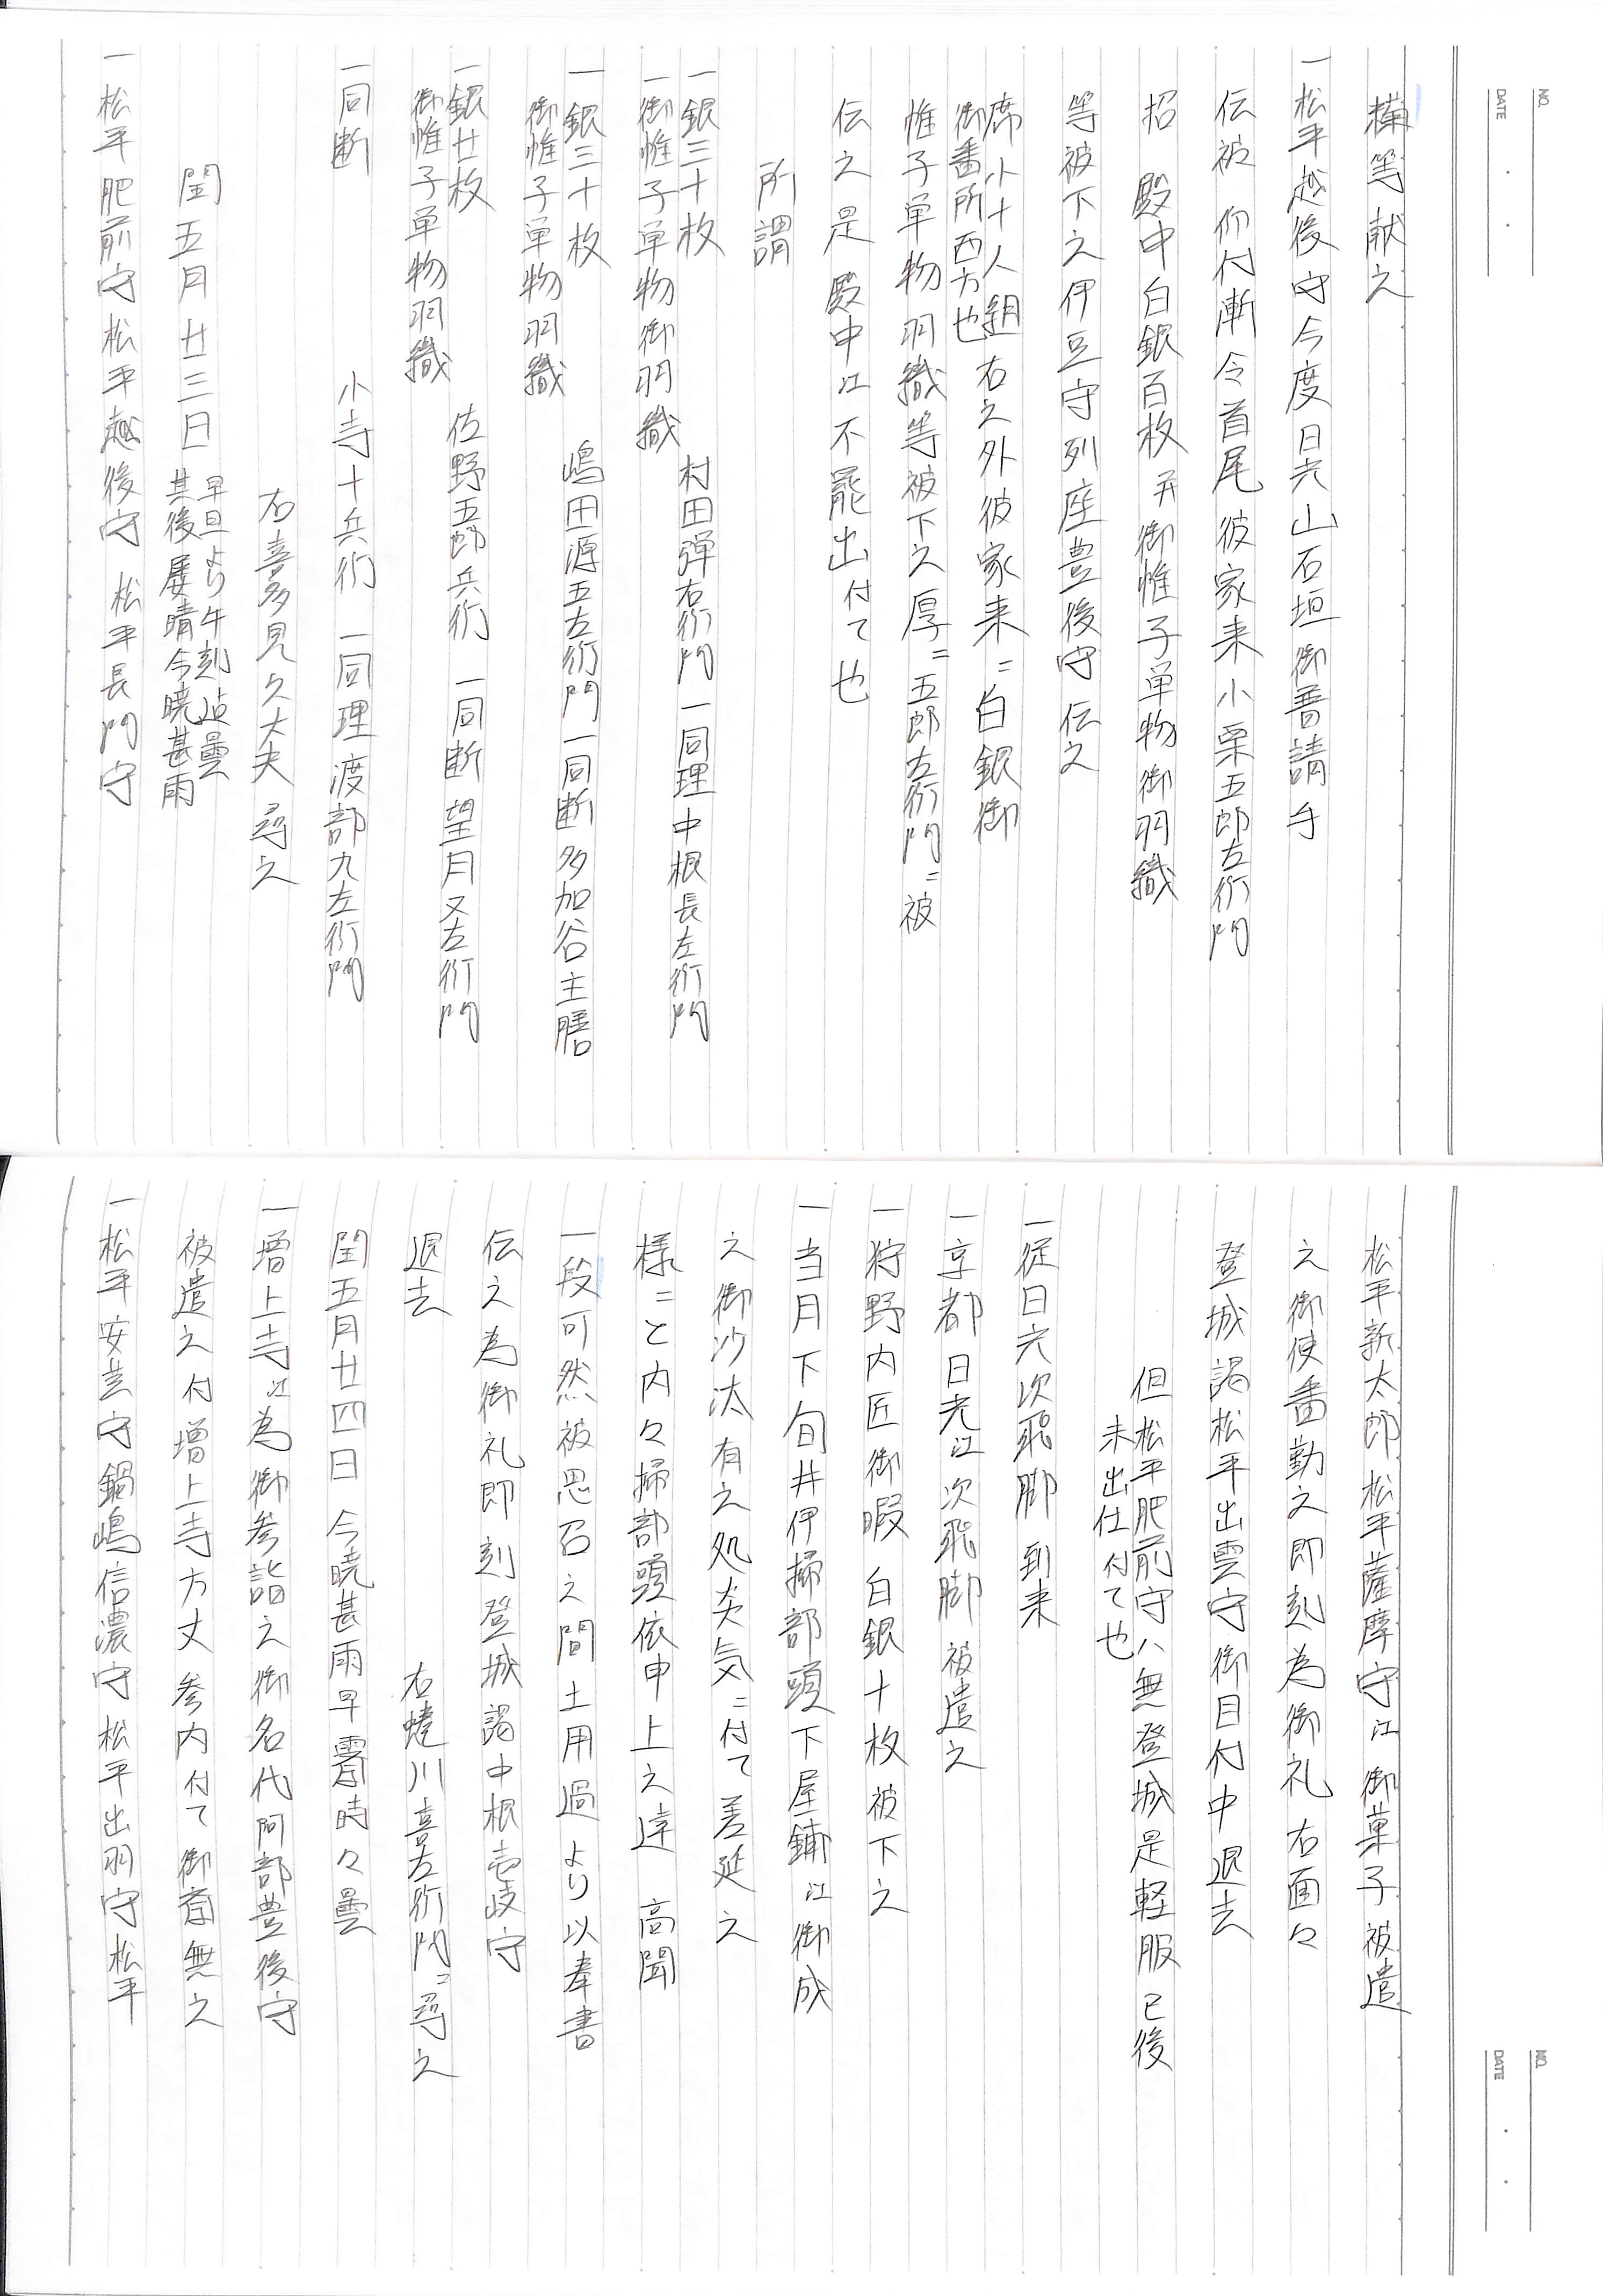 NO.
DATE
樽等献之
一松平越後守今度日光山石垣御普請手
伝被 仰付漸令首尾彼家来小栗五郎左衛門
招 殿中白銀百枚并御帷子単物御羽織
等被下之伊豆守列座豊後守伝之
席小十人組
御番所西方也
右之外彼家来ニ白銀御
帷子単物羽織等被下之厚ニ五郎左衛門ニ被
伝之是 殿中江不罷出付て也
所謂
一銀三十枚
一御帷子単物御羽織
村田弾右衛門
一同理 中根長左衛門
一銀三十枚
御帷子単物羽織
嶋田源五左衛門
一同断 多加谷主膳
一銀廿枚
御帷子単物羽織
佐野五郎兵衛
一同断 望月又左衛門
一同断 小寺十兵衛 一同理 渡部九左衛門
右喜多見久大夫尋之
閏五月廿三日
早旦より午刻迠曇
其後屡晴今暁甚雨
一松平肥前守松平越後守 松平長門守
NO.
DATE
松平新太郎松平薩摩守江御菓子被遣
之御使番勤之即刻為御礼右面々
登城謁松平出雲守御目付中退去
但松平肥前守ハ無登城是軽服已後
未出仕付て也
一従日光次飛脚到来
一京都日光江次飛脚被遣之
一狩野内匠御暇白銀十枚被下之
一当月下旬井伊掃部頭下屋鋪江御成
之御沙汰有之処炎気ニ付て差延之
様ニと内々掃部頭依申上之達 高聞
一段可然被思召之間土用過より以奉書
伝之為御礼即刻登城謁中根壱岐守
退去
右蜷川喜左衛門ニ尋之
閏五月廿四日今暁甚雨早霽時々曇
一増上寺江為御参詣之御名代阿部豊後守
被遣之付増上寺方丈参内付て御齋無之
一松平安芸守鍋嶋信濃守松平出羽守松平